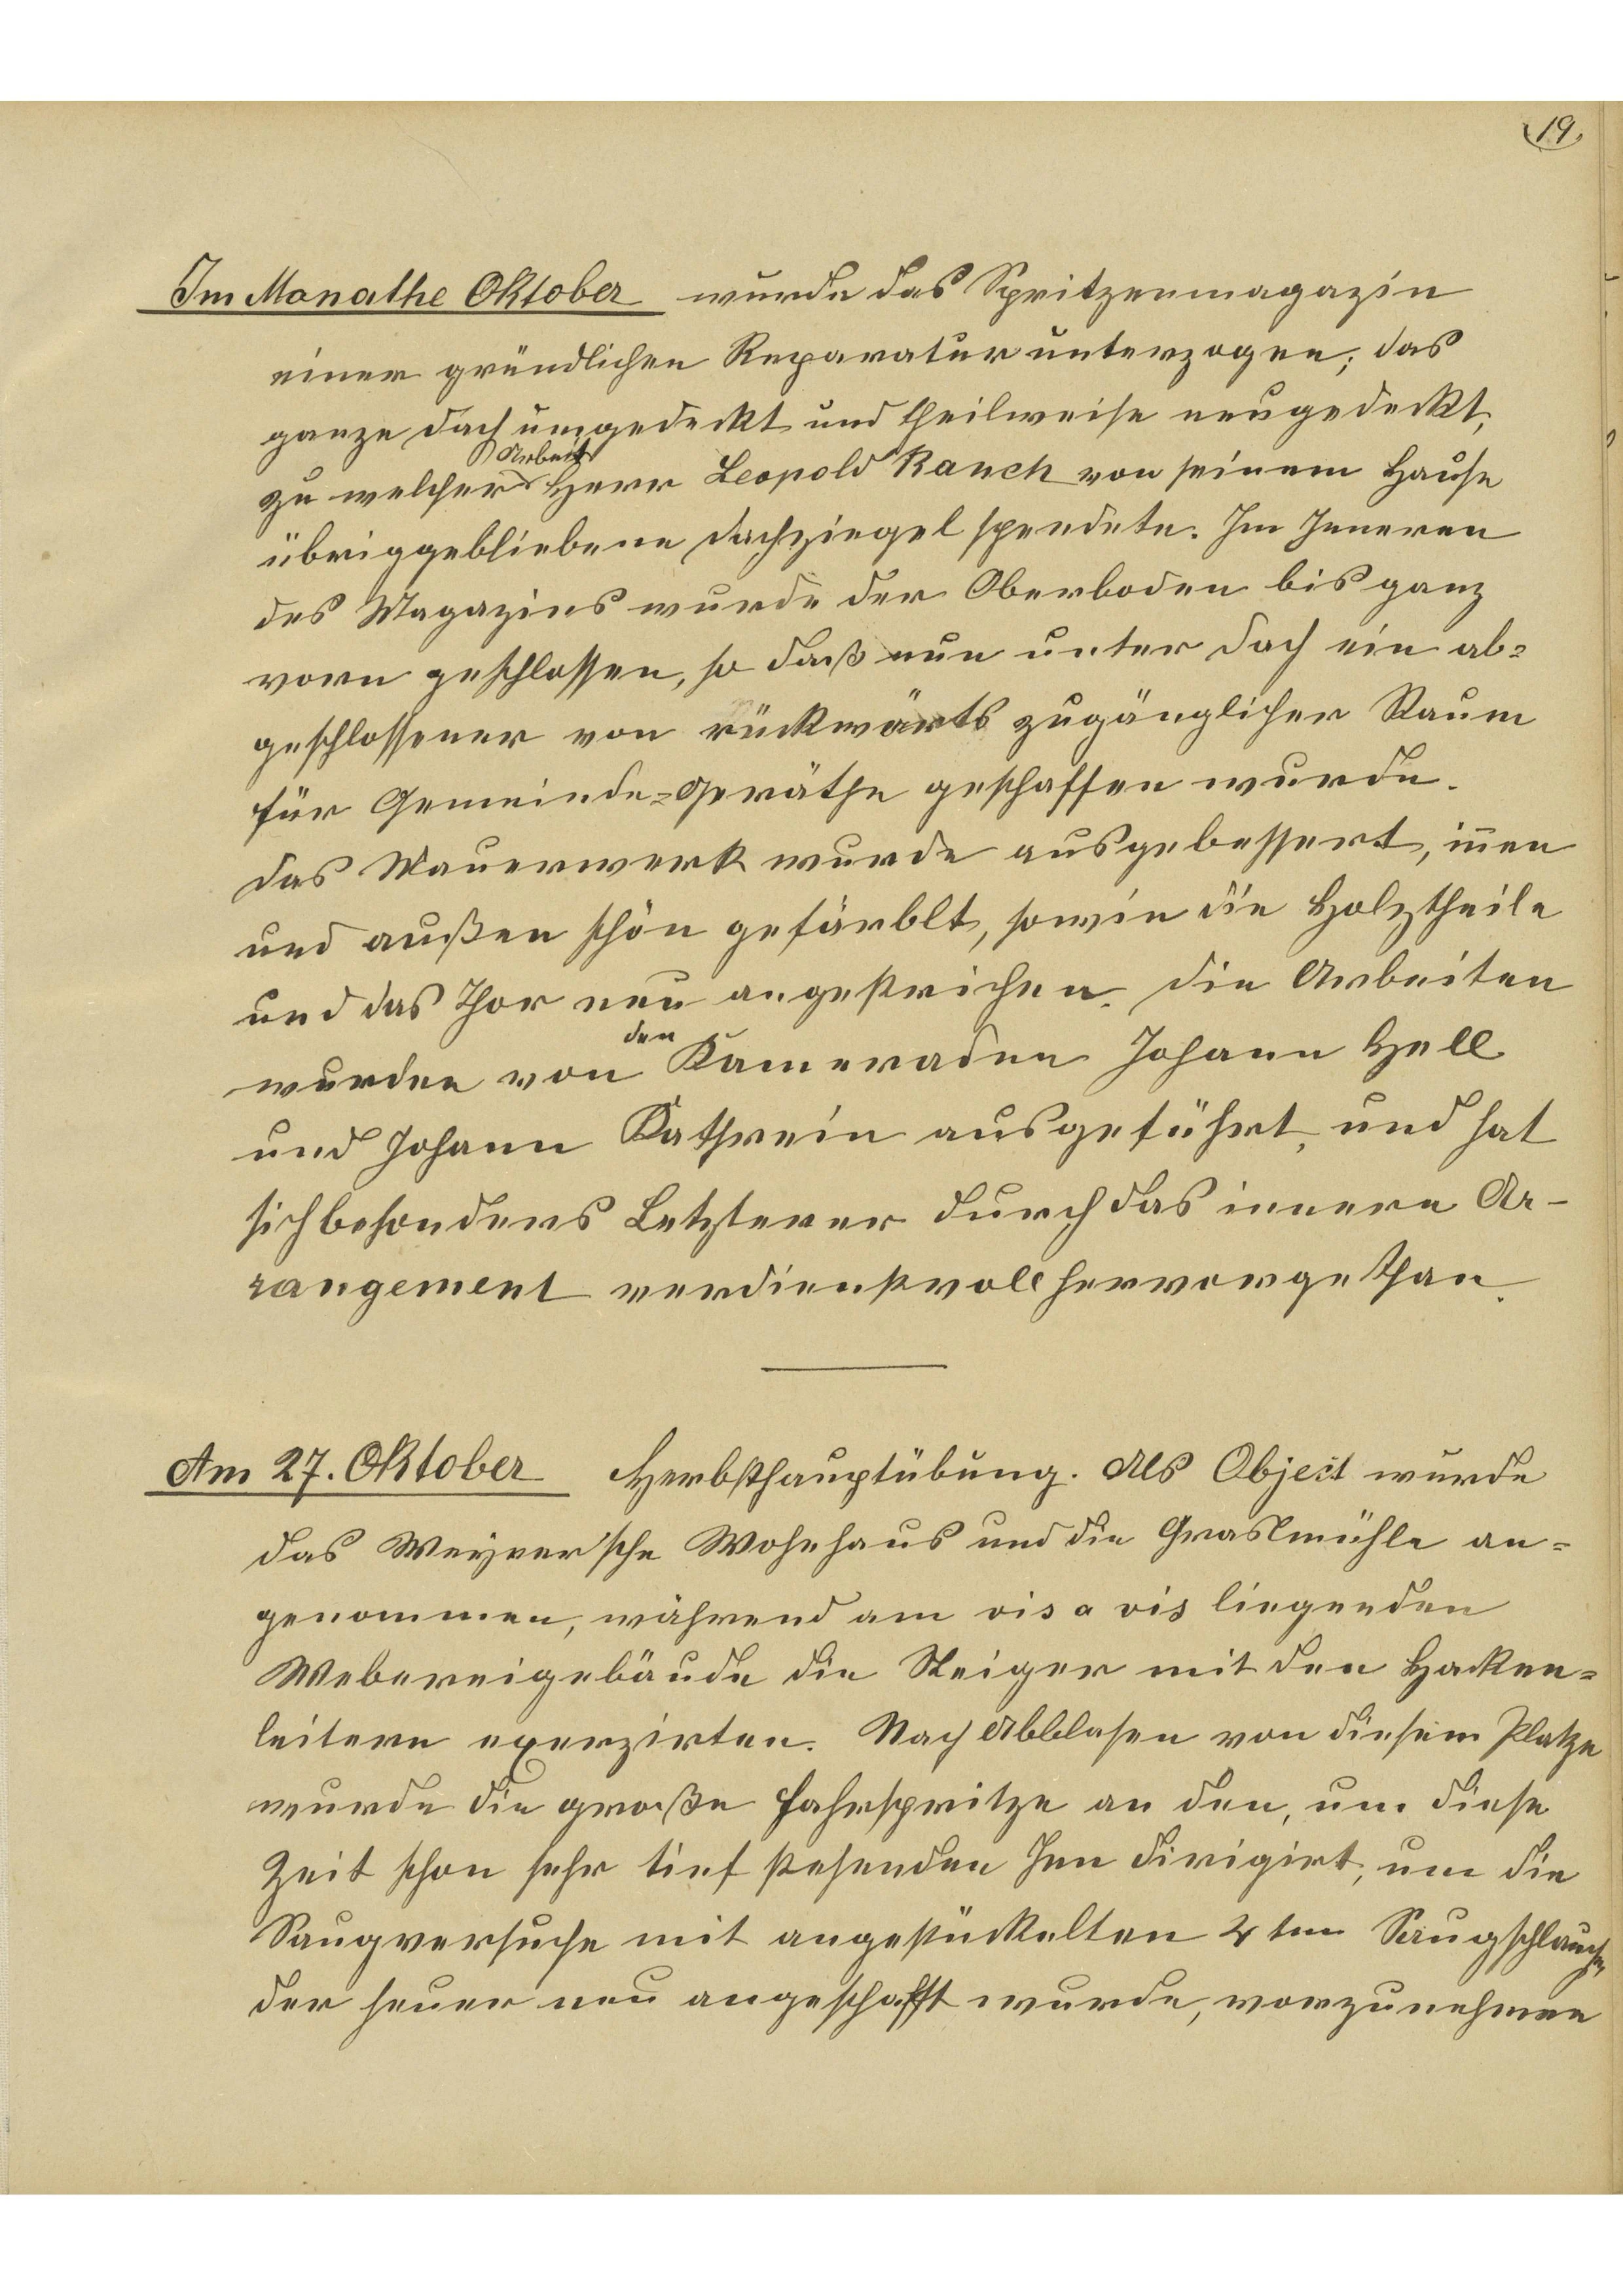 19
Im Monathe Oktober wurde das Spritzenmagazin
einer gründlichen Reparatur unterzogen; das
ganze Dach umgedeckt und theilweise neugedeckt,
Arbeit
zu welcher Herr Leopold Rauch von seinem Hause
übriggebliebene Dachziegel spendete. Im Inneren
des Magazins wurde der Oberboden bis ganz
vorn geschlossen, so daß nun unter Dach ein ab=
geschlossener von rückwärts zugänglicher Raum
für Gemeinde=Geräthe geschaffen wurde.
Das Mauerwerk wurde ausgebessert, iñen
und außen schön gefärblt, sowie die Holztheile
und das Thor neu angestrichen. Die Arbeiten
den
wurden von Kameraden Johann Hell
und Johann Kathrein ausgeführt, und hat
sich besonders Letzterer durch das innere Ar-
rangement verdienstvoll hervorgethan.
Am 27. Oktober Herbsthauptübung. Als Object wurde
das Weyrer'sche Wohnhaus und die Graslmühle an=
genommen, während am vis a vis liegenden
Webereigebäude die Steiger mit den Hacken=
leitern exerzirten. Nach Abblasen von diesem Platze
wurde die große Fahrspritze an den, um diese
Zeit schon sehr tief stehenden Inn dirigirt, um die
Saugversuche mit angestückelten 4ten Saugschlauche,
der heuer neu angeschafft wurde, vorzunehmen